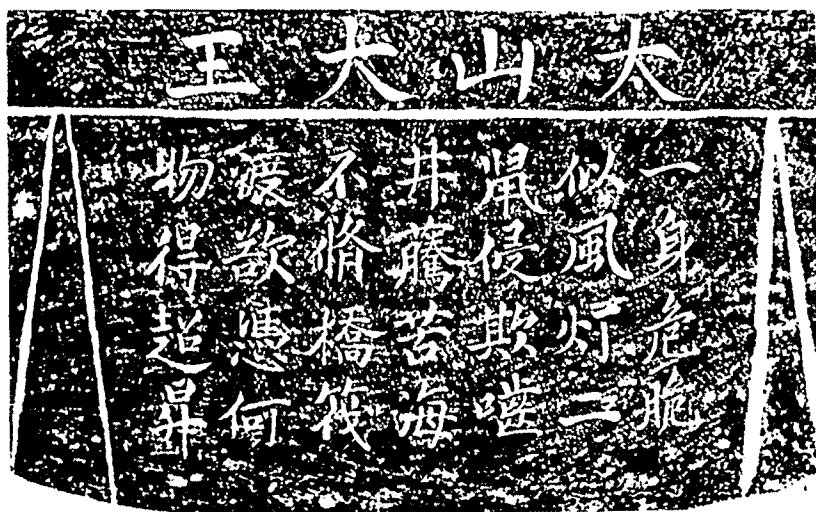 太山大王
一身危脆
似風灯二
鼠侵欺嚙
井藤苦海
不脩橋筏
渡欲憑何
物得超昇